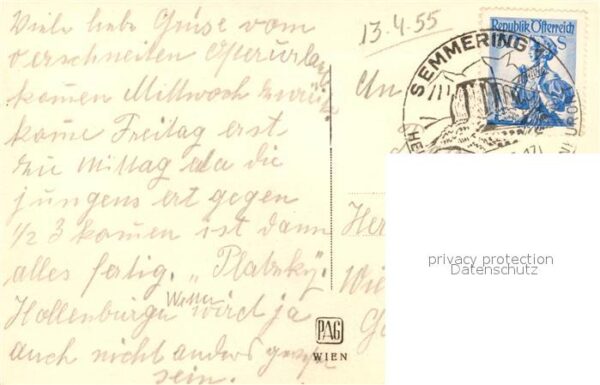 Viele liebe Grüse vom
verschneiten Osterurlaub
komen Mittwoch zurück
kome Freitag erst
zu Mittag da die
jungens ert gegen
1/2 3 komen ist dann
alles fertig. "Platzky".
Hollenburger Wetter wird ja
auch nicht anders gewesen
sein.
13.4.55
An
Her
Wie
Republik Österreich
S
SEMMERING
PAG
WIEN
privacy protection
Datenschutz